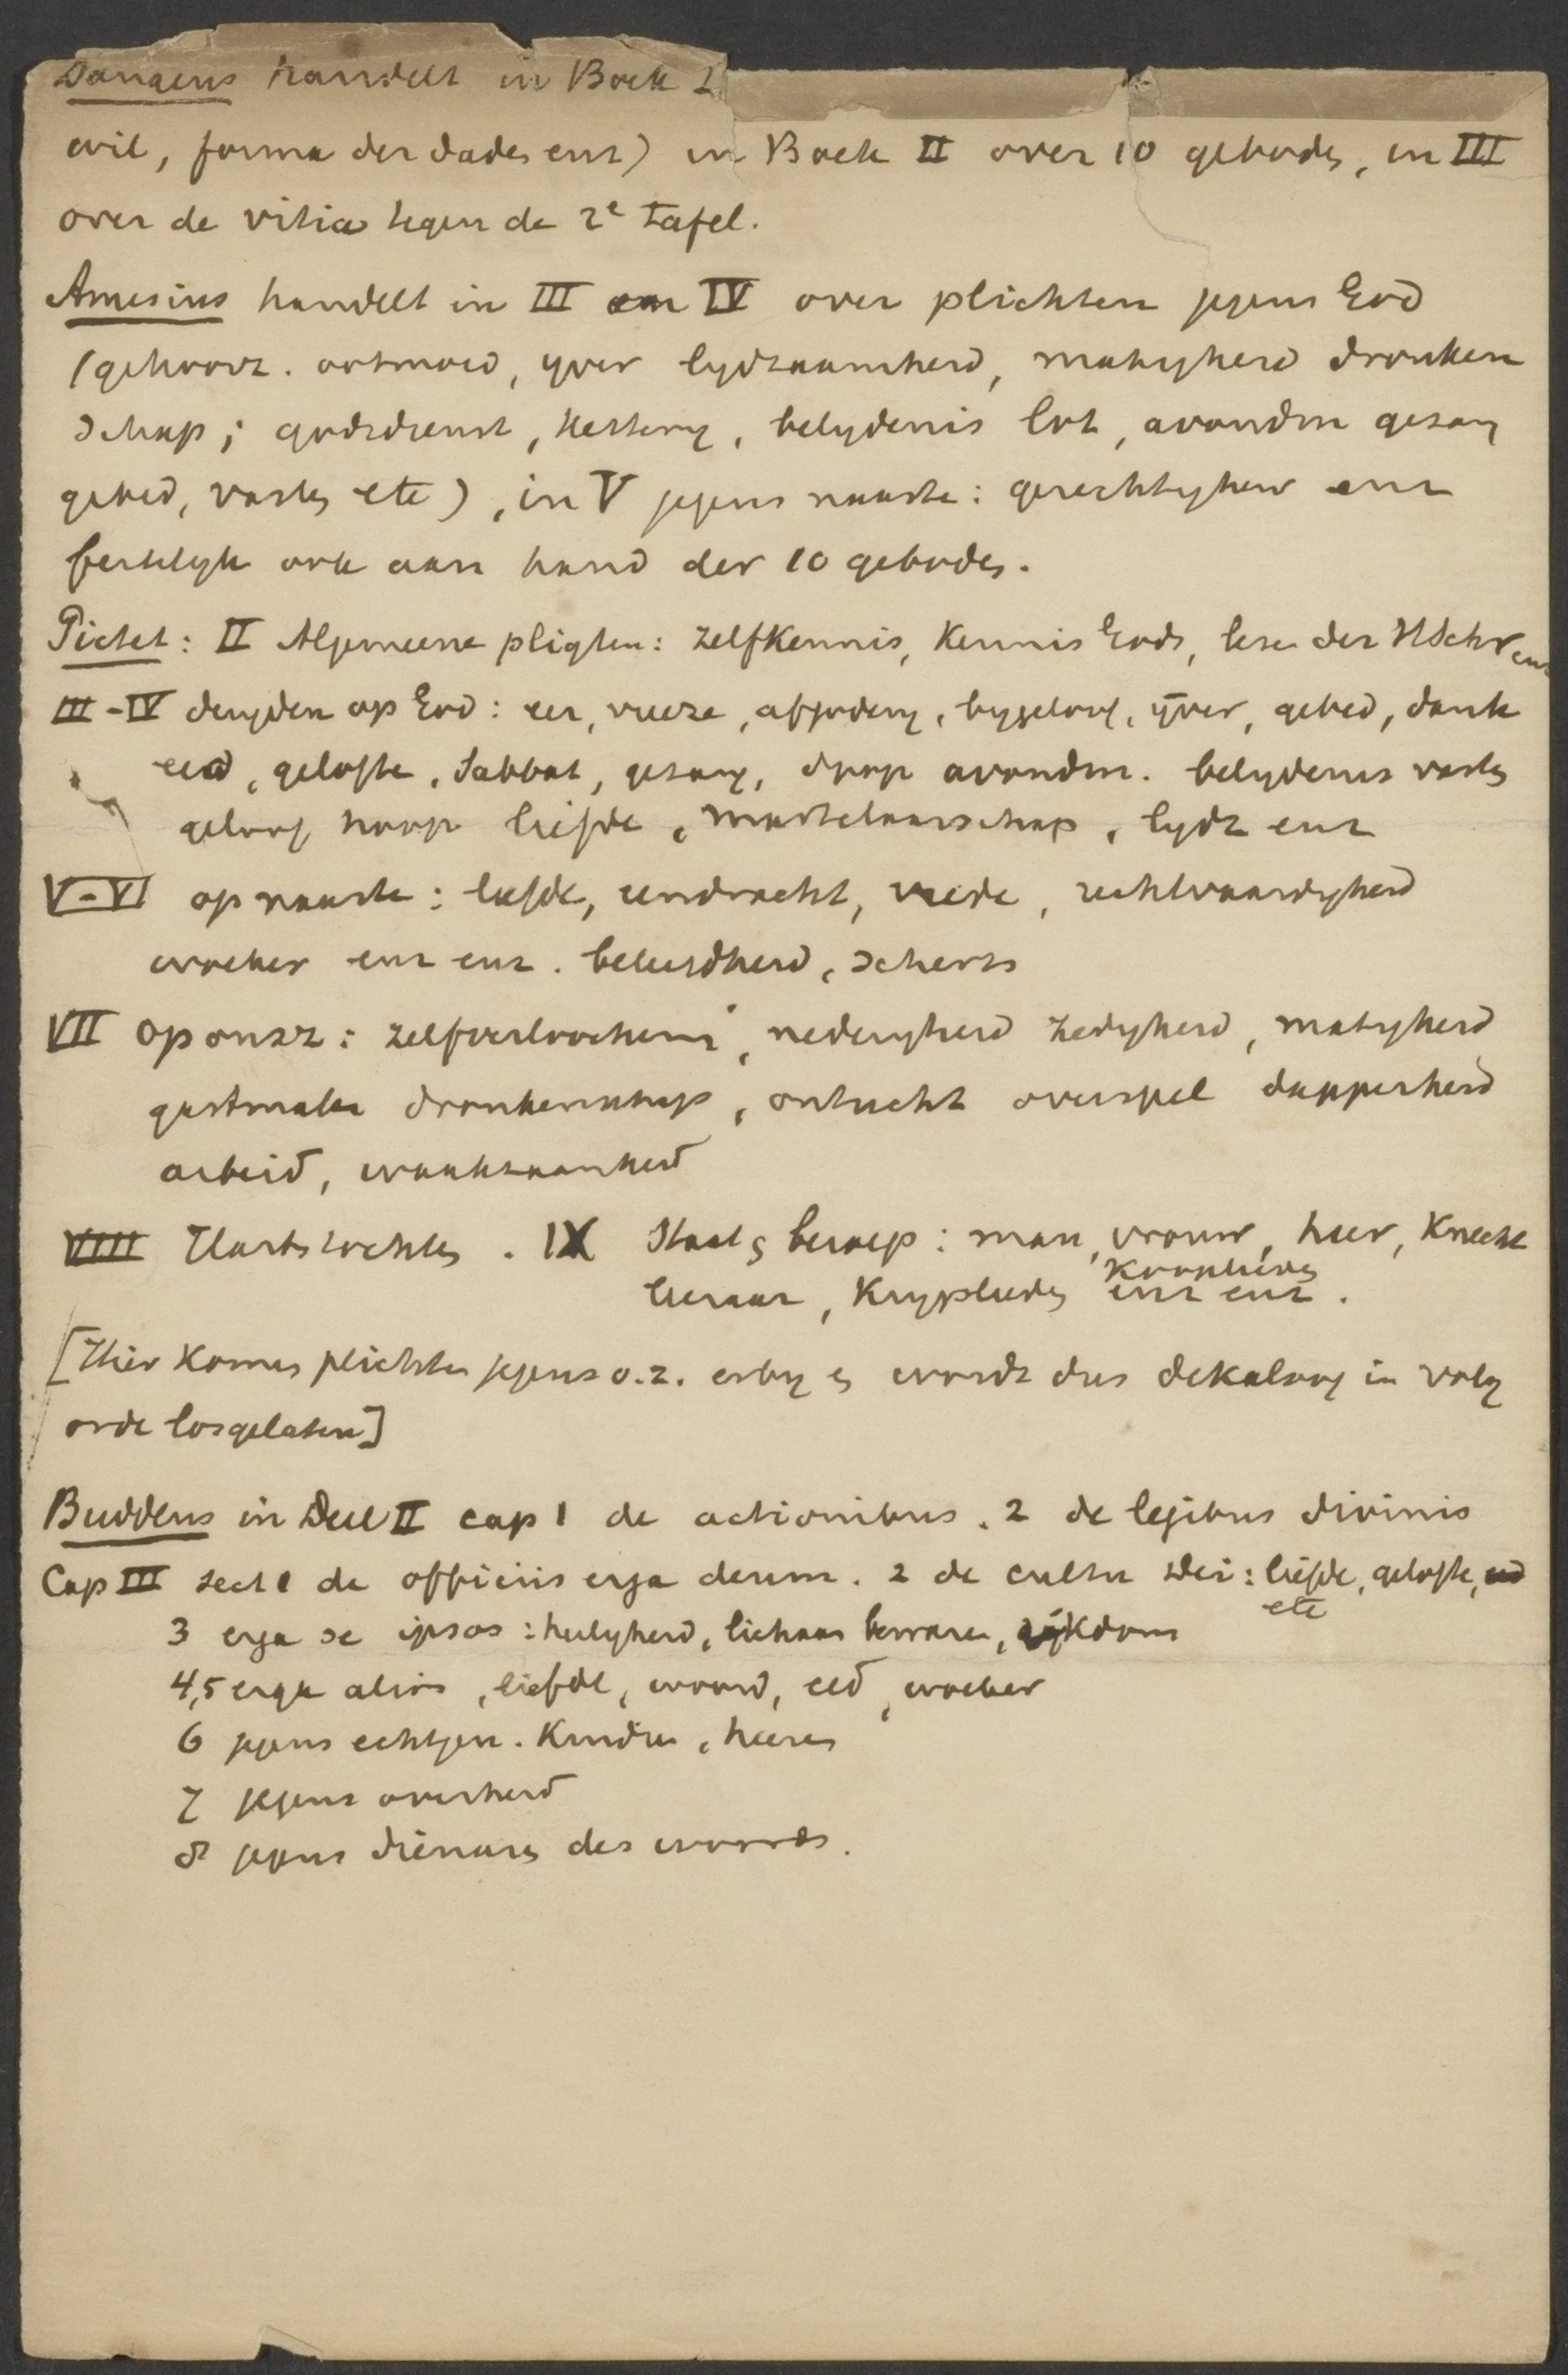 Danaeus handelt in Boek I
wil, forma der daden enz) in Boek II over 10 geboden, in III
over de vitia tegen de 2e tafel.
Amesius handelt in III en IV over plichten jegens God
(gehoorz. ootmoed, yver lydzaamheid, matigheid dronken
schap; godsdienst, kettery, belydenis lot, avondm gezang
gebed, vasten etc), in V jegens naaste: gerechtigheid enz
feitelyk ook aan hand der 10 geboden.
Pictet: II Algemeene pligten: zelfkennis, kennis Gods, lezen der HSchr enz
III-IV deugden op God: eer, vreeze, afgodery, bygeloof, yver, gebed, dank
eed, gelofte, Sabbat, gezang, doop avondm. belydenis vasten
geloof hoop liefde, martelaarschap, lydz enz
V-VI op naaste: liefde, eendracht, vrede, rechtvaardigheid
woeker enz enz. beleefdheid, scherts
VII op onsz: zelfverloochening, nederigheid zedigheid, matigheid
gastmalen dronkenschap, ontucht overspel dapperheid
arbeid, waakzaamheid
VIII Hartstochten. IX Staat en beroep: man, vrouw, heer, knecht
leeraar, krygslieden kooplieden enz enz.
[Hier komen plichten jegens o.z. erby en wordt dus dekaloog in volg
orde losgelaten]
Buddeus in Deel II cap 1 de actionibus. 2 de legibus divinis
Cap III sect 1 de officiis erga deum. 2 de cultu Dei: liefde, gelofte, eed
etc
3 erga se ipsos: heiligheid, lichaam bewaren, rijkdom
4,5 erga alios, liefde, woord, eed, woeker
6 jegens echtgen. kinderen, heeren
7 jegens overheid
8 jegens dienaren des woords.